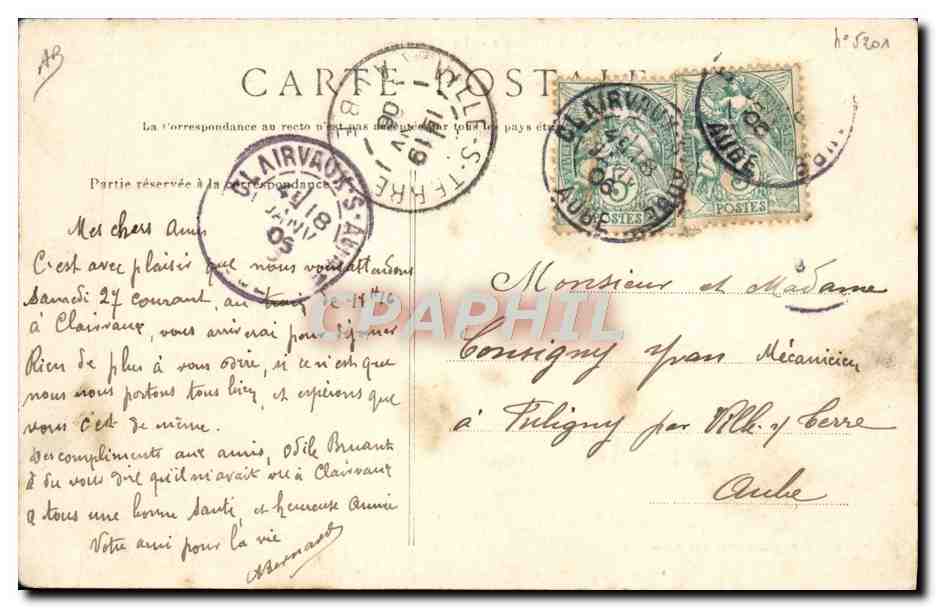 AB
n° 5201
CARTE POSTALE
La Correspondance au recto n'est pas acceptée par tous les pays
Partie réservée à la correspondance
VILLE-S-TERRE
AUBE
CLAIRVAUX-S-AUBE
18
JANV
06
CLAIRVAUX-S-AUBE
AUBE
5
POSTES
5
POSTES
CPAPHIL
Mes chers Amis
C'est avec plaisir que nous vous attendons
Samedi 27 courant, au train de
à Clairvaux, vous arriverai pour déjeuner
Rien de plus à vous dire, si ce n'est que
nous nous portons tous bien, et espérons que
vous c'est de même.
Des compliments aux amis, Odile Bruant
a du vous dire qu'il m'avait vu à Clairvaux
a tous une bonne Santé, et heureuse Année
Votre ami pour la vie
ABernard
Monsieur et Madame
Consigny Yvan Mécanicien
à Fuligny par Ville s/ Terre
Aube